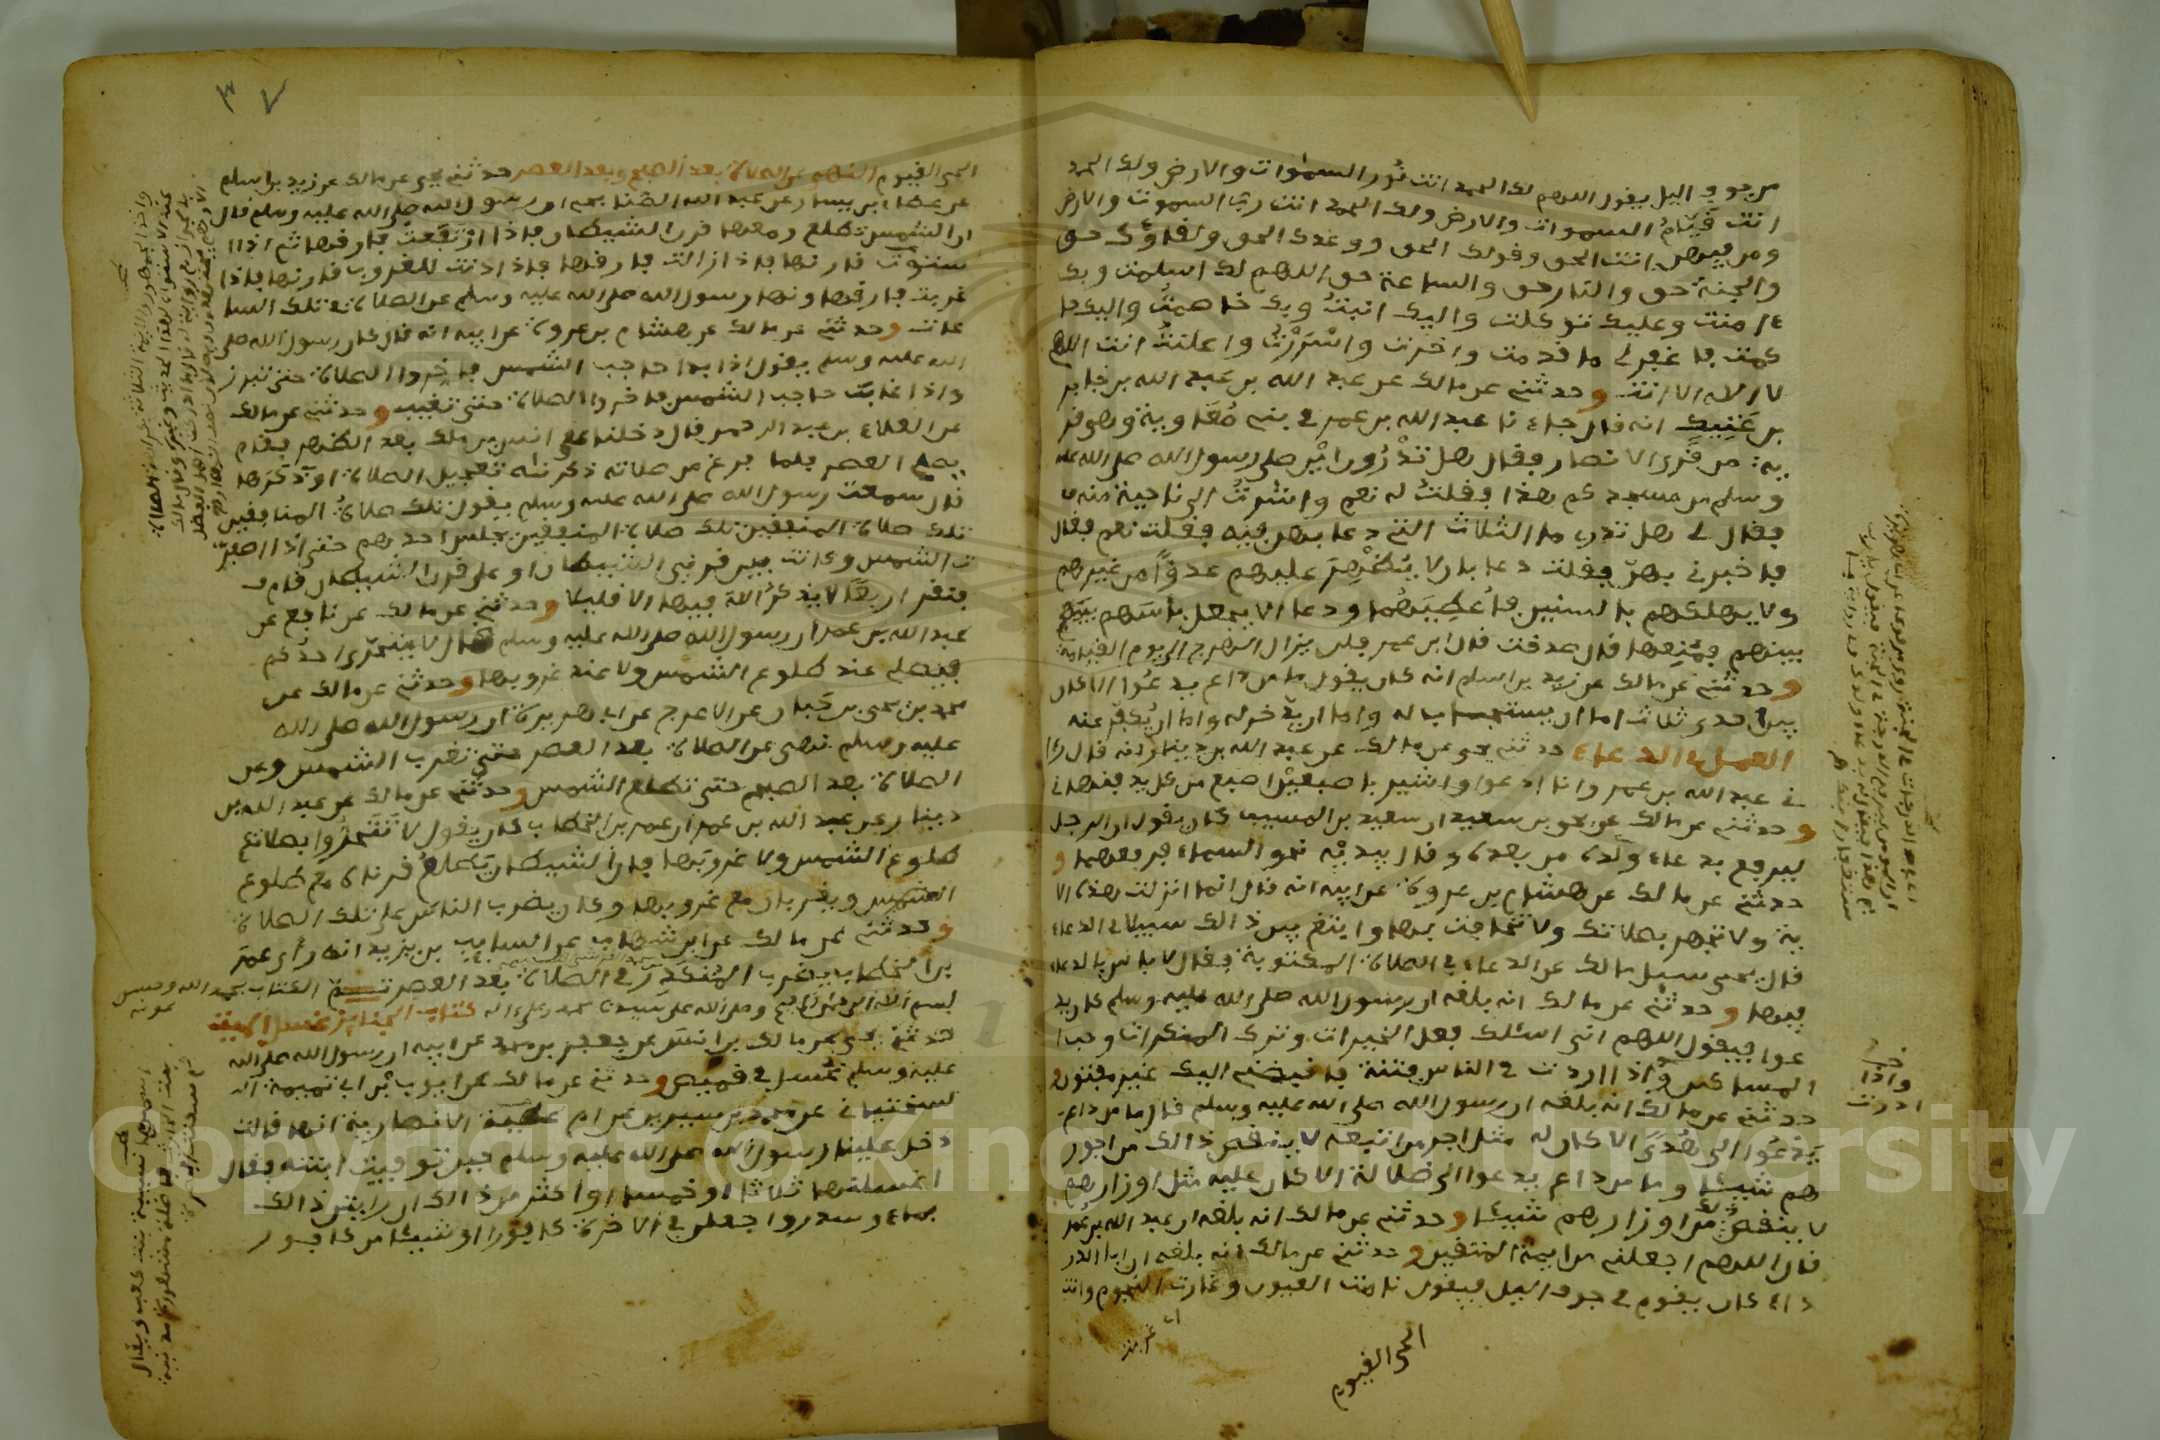 من جوف اليل يقول اللهم لك الحمد انت نور السموات والارض ولك الحمد
انت قيام السموات والارض ولك الحمد انت رب السموت والارض
ومن فيهن انت الحق وقولك الحق ووعدك الحق ولقاؤك حق
والجنة حق والنار حق والساعة حق اللهم لك اسلمت وبك
ءامنت وعليك توكلت واليك انبت وبك خاصمت واليك حا
كمت فاغفر لي ما قدمت واخرت واسررت واعلنت انت اللهم
لا اله الا انت وحدثني عن مالك عن عبد الله بن عبد الله بن جابر
بن عتيك انه قال جاءنا عبد الله بن عمر في بني معاوية وهو قر
ية من قرى الانصار فقال هل تدرون اين صلى رسول الله صلى الله عليه
وسلم من مسجدكم هذا فقلت له نعم واشرت الى ناحية منه
فقال لي هل تدري ما الثلاث التي دعا بهن فيه فقلت نعم فقال
فاخبرني بهن فقلت دعا بان لا يظهر عليهم عدوا من غيرهم
ولا يهلكهم بالسنين فاعطيهما ودعا الا يجعل باسهم بينهم
بينهم فمنعها قال صدقت قال ابن عمر فلن يزال الهرج الى يوم القيامة
وحدثني عن مالك عن زيد بن اسلم انه كان يقول ما من داع يدعوا الا كان
بين احدى ثلاث اما ان يستجاب له واما ان يدخر له واما ان يكفر عنه
العمل في الدعاء حدثني يحي عن مالك عن عبد الله بن دينار انه قال رءا
ني عبد الله بن عمر وانا ادعوا واشير باصبعين اصبع من كل يد فنهاني
وحدثني عن مالك عن يحي بن سعيد ان سعيد بن المسيب كان يقول ان الرجل
ليرفع بدعاء ولده من بعده وقال بيديه نحو السماء فرفعهما و
حدثني عن مالك عن هشام بن عروة عن ابيه انه قال انما انزلت هذه الا
ية ولا تجهر بصلاتك ولا تخافت بها وابتغ بين ذالك سبيلا في الدعاء
قال يحي سيل مالك عن الدعاء في الصلاة المكتوبة فقال لا باس بالدعاء
فيها وحدثني عن مالك انه بلغه ان رسول الله صلى الله عليه وسلم كان يد
عوا فيقول اللهم اني اسئلك فعل الخيرات وترك المنكرات وحب ا
لمساكين واذا اردت في الناس فتنة فاقبضني اليك غير مفتون و
حدثني عن مالك انه بلغه ان رسول الله صلى الله عليه وسلم قال ما من داع
يدعوا الى هدى الا كان له مثل اجر من اتبعه لا ينقص ذالك من اجور
هم شيئا وما من داع يدعوا الى ضلالة الا كان عليه مثل اوزارهم
لا ينقص ذلك من اوزارهم شيئا وحدثني عن مالك انه بلغه ان عبد الله بن عمر
قال اللهم اجعلني من ايمة المتقين وحدثني عن مالك انه بلغه ان ابا الدر
داء كان يقوم في جوف اليل فيقول نامت العيون وغارت النجوم وانت
الحي القيوم
خ
واذا
ادرت
٣ ٧
الحي القيوم النهي عن الصلاة بعد الصبح وبعد العصر حدثني يحي عن مالك عن زيد بن اسلم
عن عطاء بن يسار عن عبد الله الصنابحي ان رسول الله صلى الله عليه وسلم قال
ان الشمس تطلع ومعها قرن الشيطان فاذا ارتفعت فارقها ثم اذا ا
ستوت قارنها فاذا زالت فارقها فاذا دنت للغروب قارنها فاذا
غربت فارقها ونها رسول الله صلى الله عليه وسلم عن الصلاة في تلك السا
عات وحدثني عن مالك عن هشام بن عروة عن ابيه انه قال كان رسول الله صلى
الله عليه وسلم يقول اذا بدا حاجب الشمس فاخروا الصلاة حتى تبرز
واذا غابت حاجب الشمس فاخروا الصلاة حتى تغيب وحدثني عن مالك
عن العلاء بن عبد الرحمن قال دخلنا على انس بن ملك بعد الظهر فقام
يصلي العصر فلما فرغ من صلاته ذكرنا له تعجيل الصلاة او ذكرها
قال سمعت رسول الله صلى الله عليه وسلم يقول تلك صلاة المنافقين
تلك صلاة المنفقين تلك صلاة المنفقين يجلس احدهم حتى اذا اصفر
ت الشمس وكانت بين قرني الشيطان او على قرن الشيطان قام ف
نقر اربعا لا يذكر الله فيها الا قليلا وحدثني عن مالك عن نافع عن
عبد الله بن عمر ان رسول الله صلى الله عليه وسلم قال لا يتحرى احدكم
فيصلي عند طلوع الشمس ولا عند غروبها وحدثني عن مالك عن
محمد بن يحي بن حبان عن الاعرج عن ابي هريرة ان رسول الله صلى الله
عليه وسلم نهى عن الصلاة بعد العصر حتى تغرب الشمس وعن
الصلاة بعد الصبح حتى تطلع الشمس وحدثني عن مالك عن عبد الله بن
دينار عن عبد الله بن عمر ان عمر بن الخطاب كان يقول لا تتحروا بصلاتكم
طلوع الشمس ولا غروبها فان الشيطان يطلع قرناه مع طلوع
الشمس ويغربان مع غروبها وكان يضرب الناس على تلك الصلاة
وحدثني عن مالك عن ابن شهاب عن السايب بن يزيد انه رأى عمر
بن الخطاب يضرب المنكدر في الصلاة بعد العصر تم الكتاب بحمد الله وحسن
عونه
بسم الله الرحمن الرحيم وصلى الله على سيدنا محمد وعلى ءاله كتاب الجنايز غسل الميت
حدثني يحي عن مالك بن انس عن جعفر بن محمد عن ابيه ان رسول الله صلى الله
عليه وسلم غسل في قميص وحدثني عن مالك عن ايوب بن ابي تميمة ا
لسختياني عن محمد بن سيرين عن ام عطية الانصارية انها قالت
دخل علينا رسول الله صلى الله عليه وسلم حين توفيت ابنته فقال
اغسلنها ثلاثا او خمسا او اكثر من ذالك ان رايتن ذالك
بماء وسدر واجعلن في الاخرة كافورا او شيئا من كافور